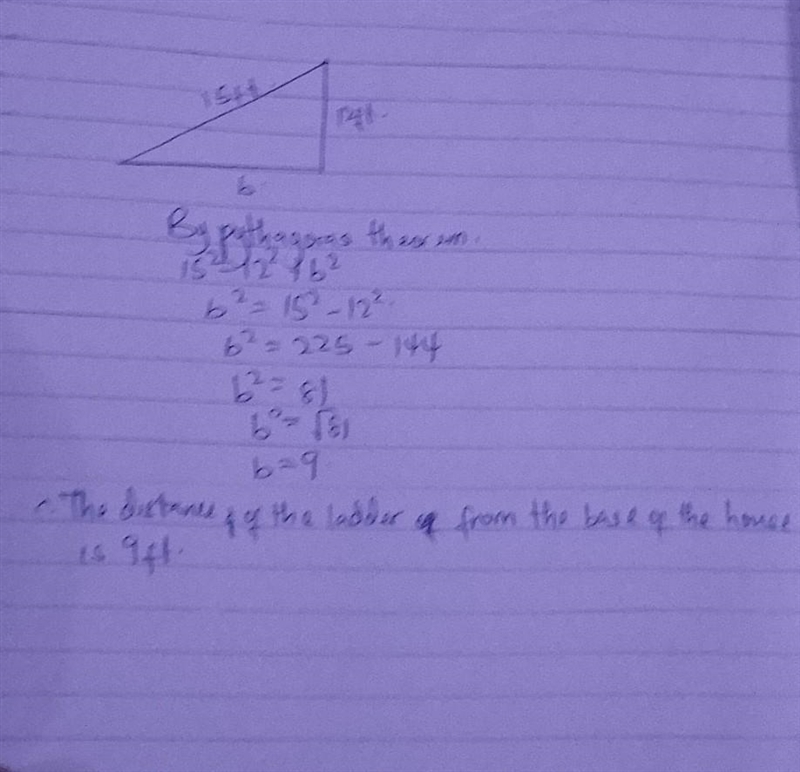 15ft
12ft.
b
By pythagoras theorem.
15² = 12² + b²
b² = 15² - 12².
b² = 225 - 144
b² = 81
b = √81
b = 9
∴ The distance of the ladder from the base of the house
is 9ft.